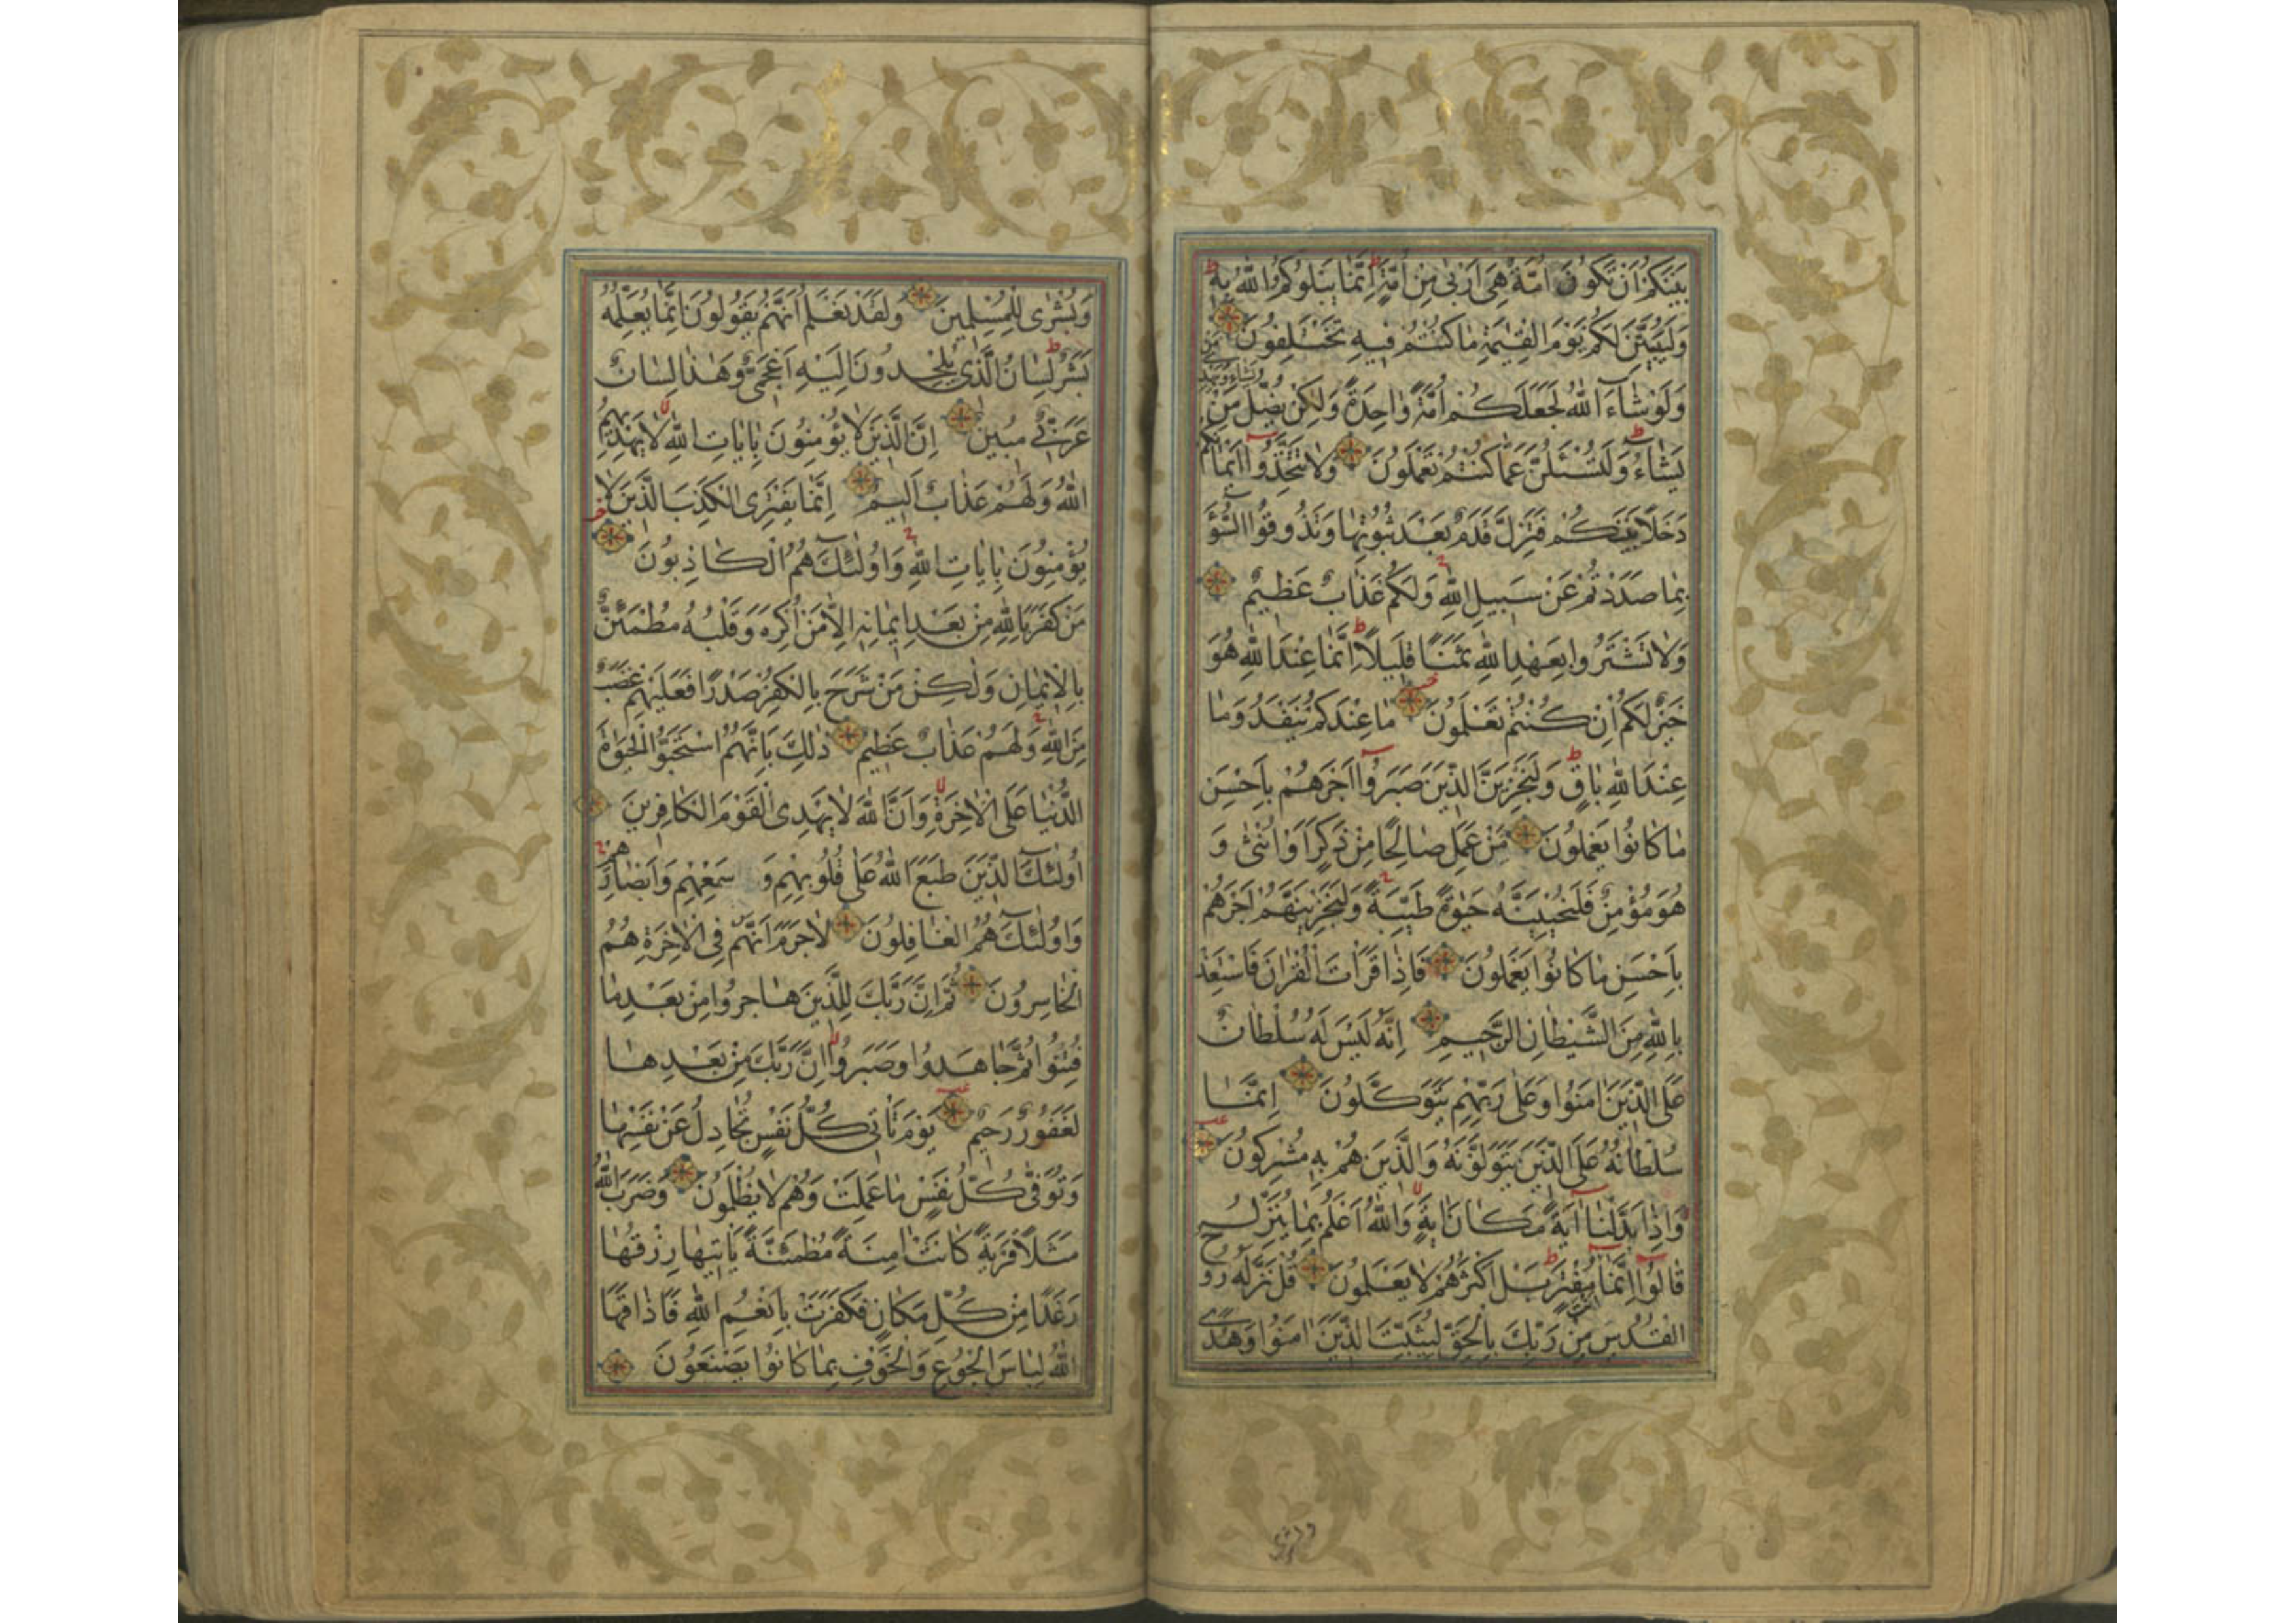 بَيْنَكُمْ اَنْ تَكُونَ اُمَّةٌ هِىَ اَرْبٰى مِنْ اُمَّةٍ اِنَّمَا يَبْلُوكُمُ اللّٰهُ بِهٖ
وَلَيُبَيِّنَنَّ لَكُمْ يَوْمَ الْقِيٰمَةِ مَا كُنْتُمْ فِيهِ تَخْتَلِفُونَ
وَلَوْ شَاءَ اللّٰهُ لَجَعَلَكُمْ اُمَّةً وَاحِدَةً وَلٰكِنْ يُضِلُّ مَنْ
يَشَاءُ وَيَهْدِى مَنْ
يَشَاءُ وَلَتُسْئَلُنَّ عَمَّا كُنْتُمْ تَعْمَلُونَ وَلَا تَتَّخِذُوا اَيْمَانَكُمْ
دَخَلًا بَيْنَكُمْ فَتَزِلَّ قَدَمٌ بَعْدَ ثُبُوتِهَا وَتَذُوقُوا السُّوءَ
بِمَا صَدَدْتُمْ عَنْ سَبِيلِ اللّٰهِ وَلَكُمْ عَذَابٌ عَظِيمٌ
وَلَا تَشْتَرُوا بِعَهْدِ اللّٰهِ ثَمَنًا قَلِيلًا اِنَّمَا عِنْدَ اللّٰهِ هُوَ
خَيْرٌ لَكُمْ اِنْ كُنْتُمْ تَعْلَمُونَ مَا عِنْدَكُمْ يَنْفَدُ وَمَا
عِنْدَ اللّٰهِ بَاقٍ وَلَنَجْزِيَنَّ الَّذِينَ صَبَرُوا اَجْرَهُمْ بِاَحْسَنِ
مَا كَانُوا يَعْمَلُونَ مَنْ عَمِلَ صَالِحًا مِنْ ذَكَرٍ اَوْ اُنْثٰى وَ
هُوَ مُؤْمِنٌ فَلَنُحْيِيَنَّهُ حَيٰوةً طَيِّبَةً وَلَنَجْزِيَنَّهُمْ اَجْرَهُمْ
بِاَحْسَنِ مَا كَانُوا يَعْمَلُونَ فَاِذَا قَرَاْتَ الْقُرْاٰنَ فَاسْتَعِذْ
بِاللّٰهِ مِنَ الشَّيْطَانِ الرَّجِيمِ اِنَّهُ لَيْسَ لَهُ سُلْطَانٌ
عَلَى الَّذِينَ اٰمَنُوا وَعَلٰى رَبِّهِمْ يَتَوَكَّلُونَ اِنَّمَا
سُلْطَانُهُ عَلَى الَّذِينَ يَتَوَلَّوْنَهُ وَالَّذِينَ هُمْ بِهٖ مُشْرِكُونَ
وَاِذَا بَدَّلْنَا اٰيَةً مَكَانَ اٰيَةٍ وَاللّٰهُ اَعْلَمُ بِمَا يُنَزِّلُ
قَالُوا اِنَّمَا اَنْتَ مُفْتَرٍ بَلْ اَكْثَرُهُمْ لَا يَعْلَمُونَ قُلْ نَزَّلَهُ رُوحُ
الْقُدُسِ مِنْ رَبِّكَ بِالْحَقِّ لِيُثَبِّتَ الَّذِينَ اٰمَنُوا وَهُدًى
وَبُشْرٰى لِلْمُسْلِمِينَ وَلَقَدْ نَعْلَمُ اَنَّهُمْ يَقُولُونَ اِنَّمَا يُعَلِّمُهُ
بَشَرٌ لِسَانُ الَّذِى يُلْحِدُونَ اِلَيْهِ اَعْجَمِىٌّ وَهٰذَا لِسَانٌ
عَرَبِىٌّ مُبِينٌ اِنَّ الَّذِينَ لَا يُؤْمِنُونَ بِاٰيَاتِ اللّٰهِ لَا يَهْدِيهِمُ
اللّٰهُ وَلَهُمْ عَذَابٌ اَلِيمٌ اِنَّمَا يَفْتَرِى الْكَذِبَ الَّذِينَ لَا
يُؤْمِنُونَ بِاٰيَاتِ اللّٰهِ وَاُولٰئِكَ هُمُ الْكَاذِبُونَ
مَنْ كَفَرَ بِاللّٰهِ مِنْ بَعْدِ اِيمَانِهٖ اِلَّا مَنْ اُكْرِهَ وَقَلْبُهُ مُطْمَئِنٌّ
بِالْاِيمَانِ وَلٰكِنْ مَنْ شَرَحَ بِالْكُفْرِ صَدْرًا فَعَلَيْهِمْ غَضَبٌ
مِنَ اللّٰهِ وَلَهُمْ عَذَابٌ عَظِيمٌ ذٰلِكَ بِاَنَّهُمُ اسْتَحَبُّوا الْحَيٰوةَ
الدُّنْيَا عَلَى الْاٰخِرَةِ وَاَنَّ اللّٰهَ لَا يَهْدِى الْقَوْمَ الْكَافِرِينَ
اُولٰئِكَ الَّذِينَ طَبَعَ اللّٰهُ عَلٰى قُلُوبِهِمْ وَ سَمْعِهِمْ وَاَبْصَارِهِمْ
وَاُولٰئِكَ هُمُ الْغَافِلُونَ لَا جَرَمَ اَنَّهُمْ فِى الْاٰخِرَةِ هُمُ
الْخَاسِرُونَ ثُمَّ اِنَّ رَبَّكَ لِلَّذِينَ هَاجَرُوا مِنْ بَعْدِ مَا
فُتِنُوا ثُمَّ جَاهَدُوا وَصَبَرُوا اِنَّ رَبَّكَ مِنْ بَعْدِهَا
لَغَفُورٌ رَحِيمٌ يَوْمَ تَاْتِى كُلُّ نَفْسٍ تُجَادِلُ عَنْ نَفْسِهَا
وَتُوَفّٰى كُلُّ نَفْسٍ مَا عَمِلَتْ وَهُمْ لَا يُظْلَمُونَ وَضَرَبَ اللّٰهُ
مَثَلًا قَرْيَةً كَانَتْ اٰمِنَةً مُطْمَئِنَّةً يَاْتِيهَا رِزْقُهَا
رَغَدًا مِنْ كُلِّ مَكَانٍ فَكَفَرَتْ بِاَنْعُمِ اللّٰهِ فَاَذَاقَهَا
اللّٰهُ لِبَاسَ الْجُوعِ وَالْخَوْفِ بِمَا كَانُوا يَصْنَعُونَ